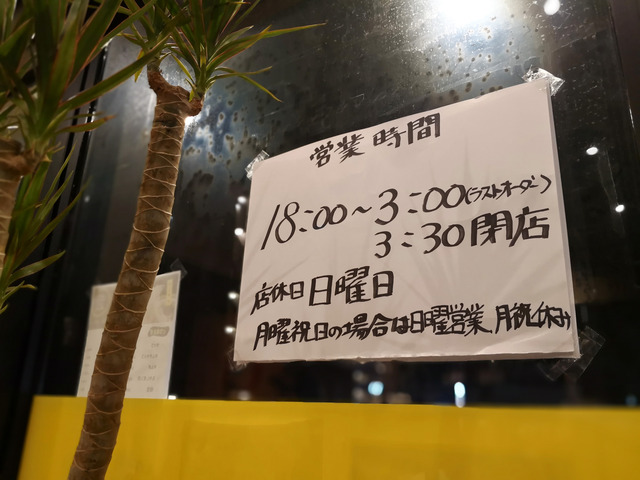 営業時間
18:00~3:00(ラストオーダー)
3:30閉店
店休日 日曜日
月曜祝日の場合は日曜営業、月祝休み